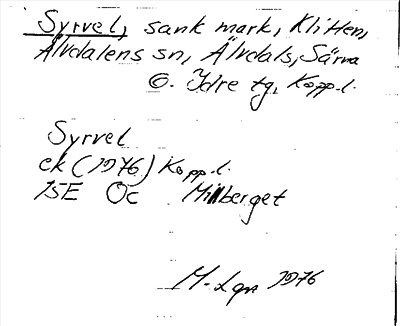 Syrvel, sank mark, Klitten,
Älvdalens sn, Älvdals, Särna
o. Idre tg, Kopp. l.
Syrvel
ek (1976) Kopp. l.
15E 0c Millberget
M. Lgn 1976